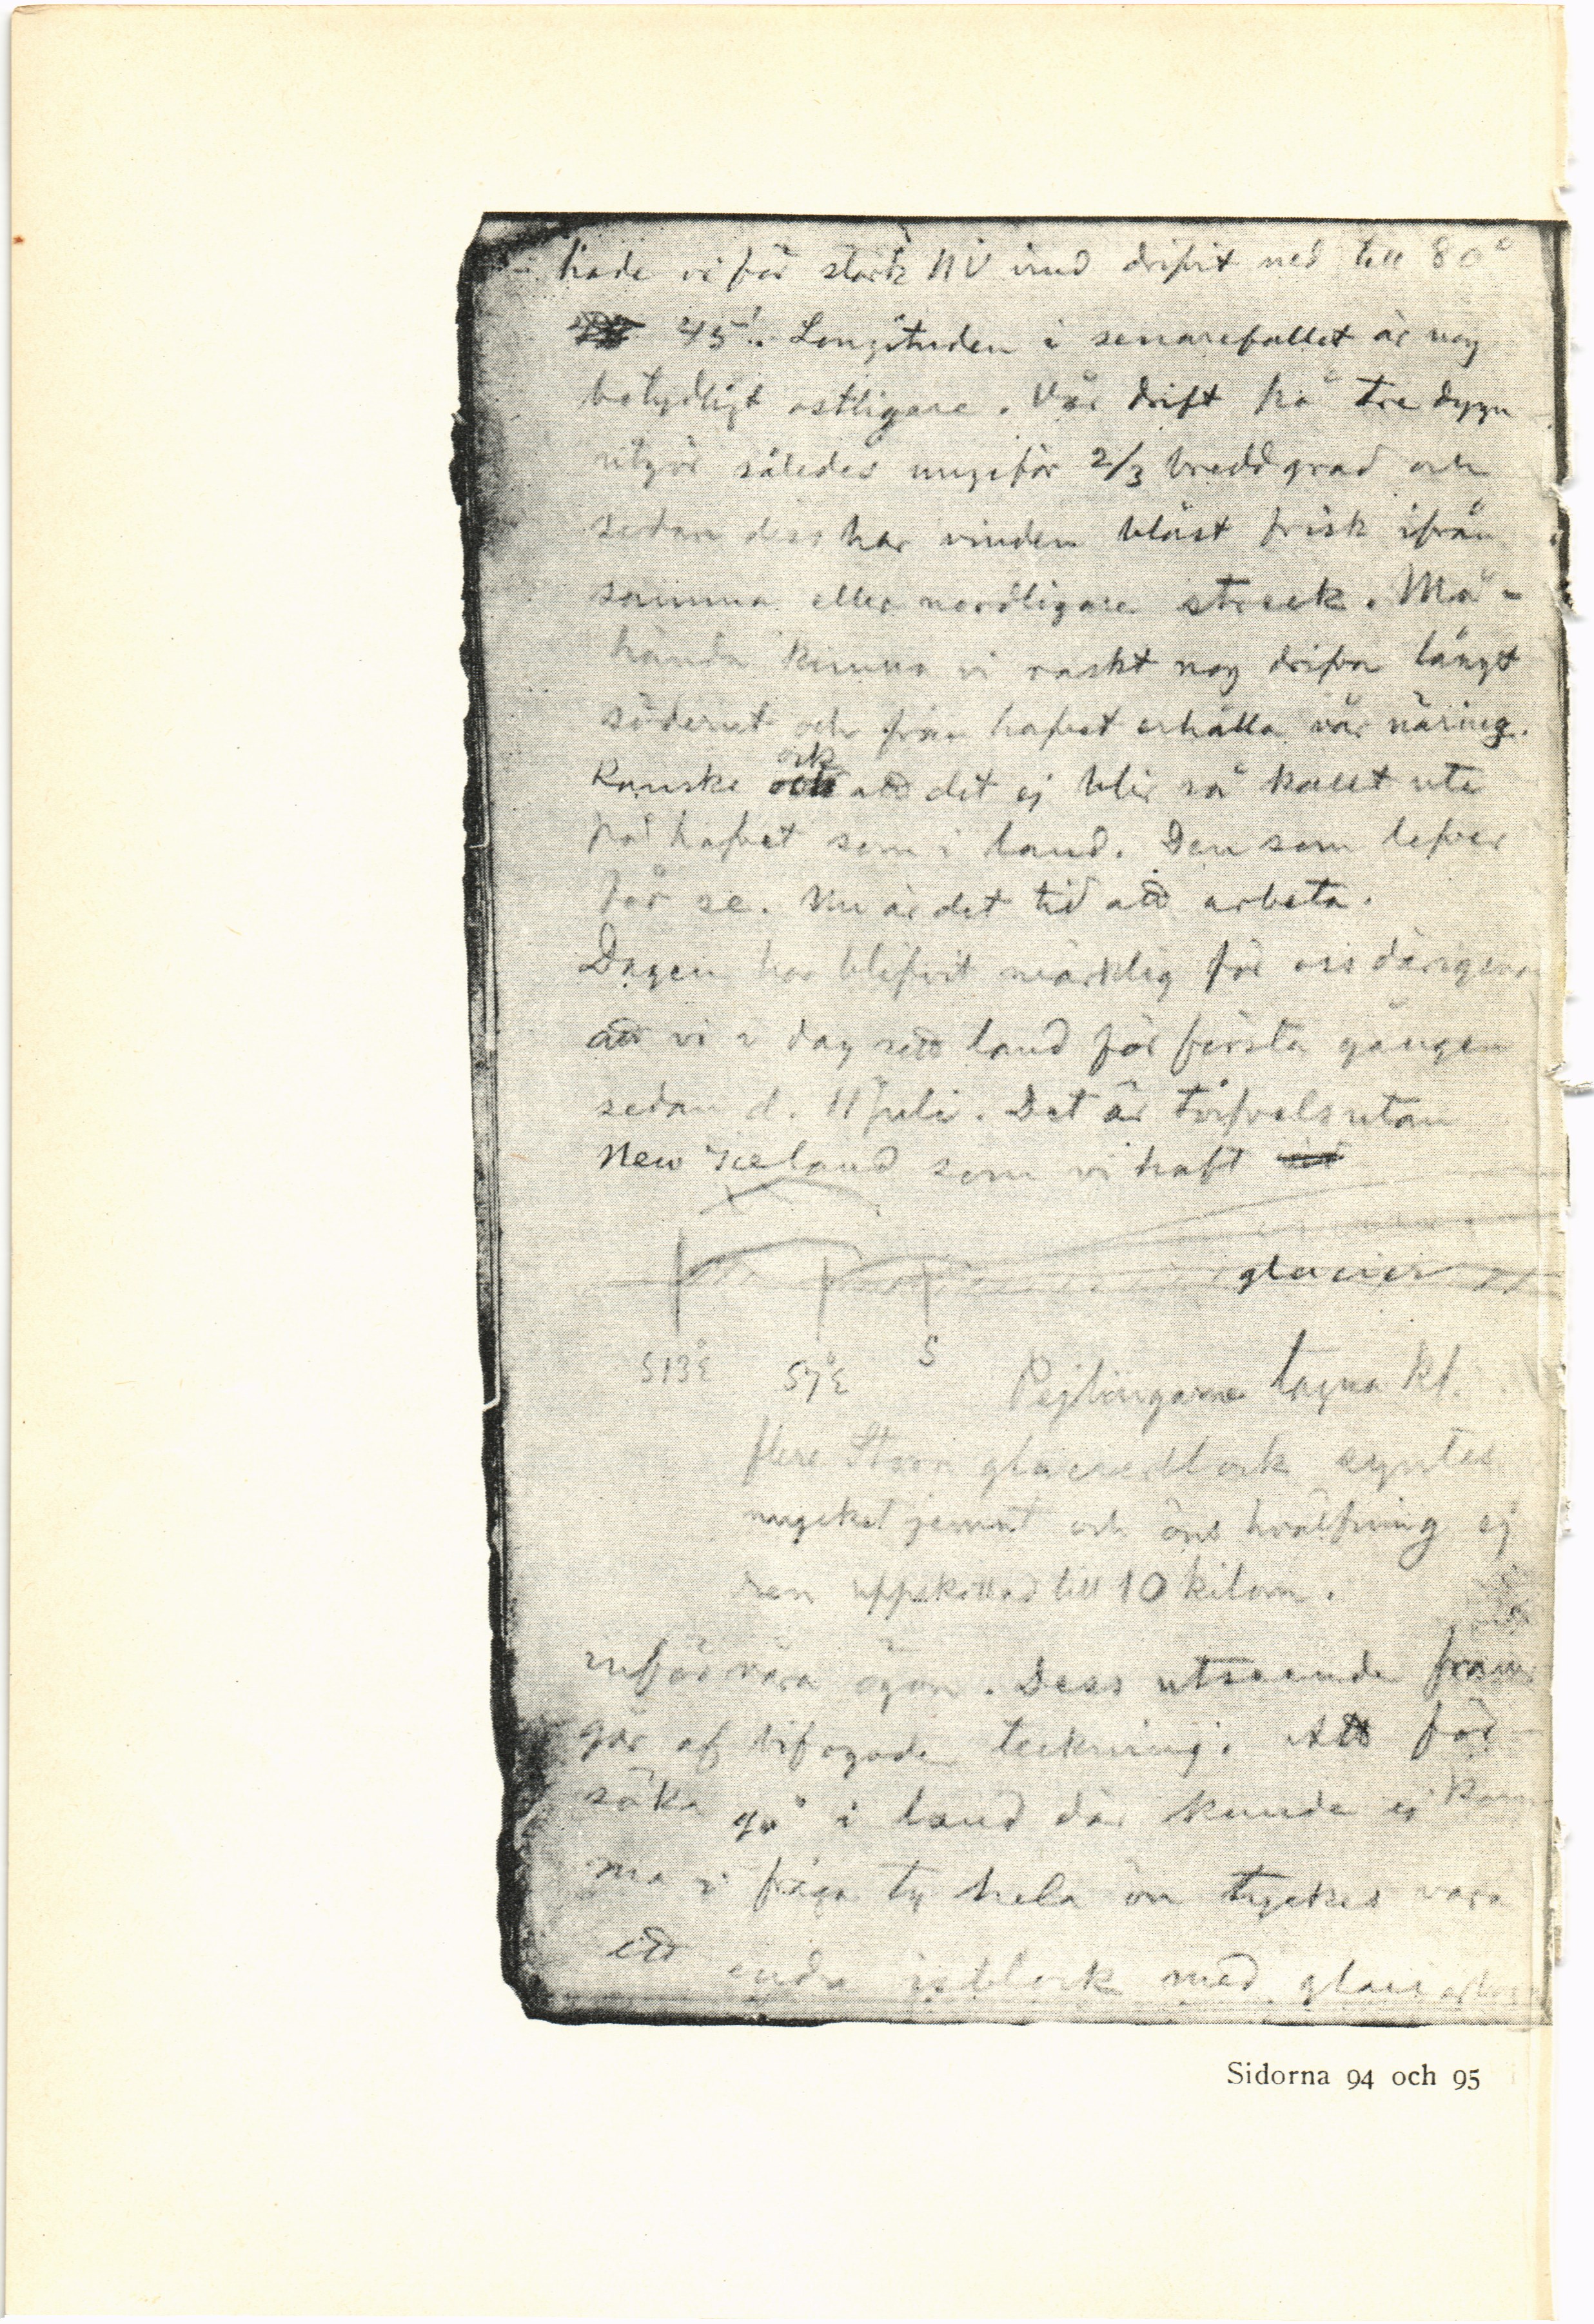 hade vi för stark NV vind drifvit ned till 80°
45'. Longituden i senare fallet är nog
betydligt ostligare. Vår drift på tre dygn
utgör således ungefär 2/3 breddgrad och
sedan dess har vinden blåst frisk ifrån
samma eller nordligare streck. Må-
hända kunna vi raskt nog drifva långt
söderut och från hafvet erhålla vår näring.
Kanske ock att det ej blir så kallt ute
på hafvet som i land. Den som lefver
får se. Nu är det tid att arbeta.
Dagen har blifvit märklig för oss därigenom
att vi i dag sett land för första gången
sedan d. 11 juli. Det är tvifvelsutan
New Iceland som vi haft
glacier
S13°E S7°E S
Pejlingarne tagna kl.
flere Stora glacierblock syntes
mycket jemnt och öns hvälfning ej
den uppskattad till 10 kilom.
inför våra ögon. Dess utseende fram-
går af bifogade teckning. Att för-
söka gå i land där kunde ej kom-
ma i fråga ty hela ön tyckes vara
ett enda isblock med
Sidorna 94 och 95